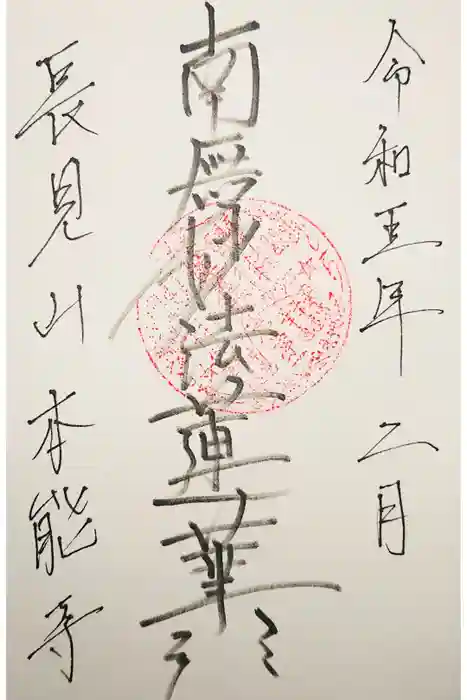 令和五年 二月
南無妙法蓮華経
長見山本能寺